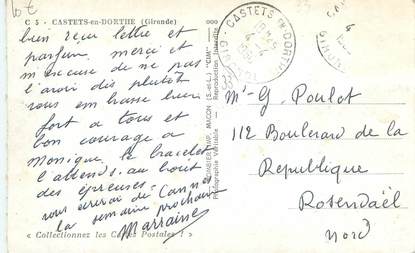 10 F
C 5 - CASTETS-en-DORTHE (Gironde)
bien reçu lettre et
parfum. merci et
m'excuse de ne pas
l'avoir dit plutôt
vous embrasse bien
fort a tous et
bon courage a
monique. le bracelet
l'attend, au bout
des épreuses.
vous de Cannes
la semaine prochaine
Marraine
« Collectionnez les Cartes Postales ! »
COMBIER IMP. MACON (S.-et-L.) "CIM"
Photographie Véritable - Reproduction Interdite
CASTETS EN DORTHE
GIRONDE
Mr G. Poulot
112 Boulevard de la
Republique
Rosendaël
Nord